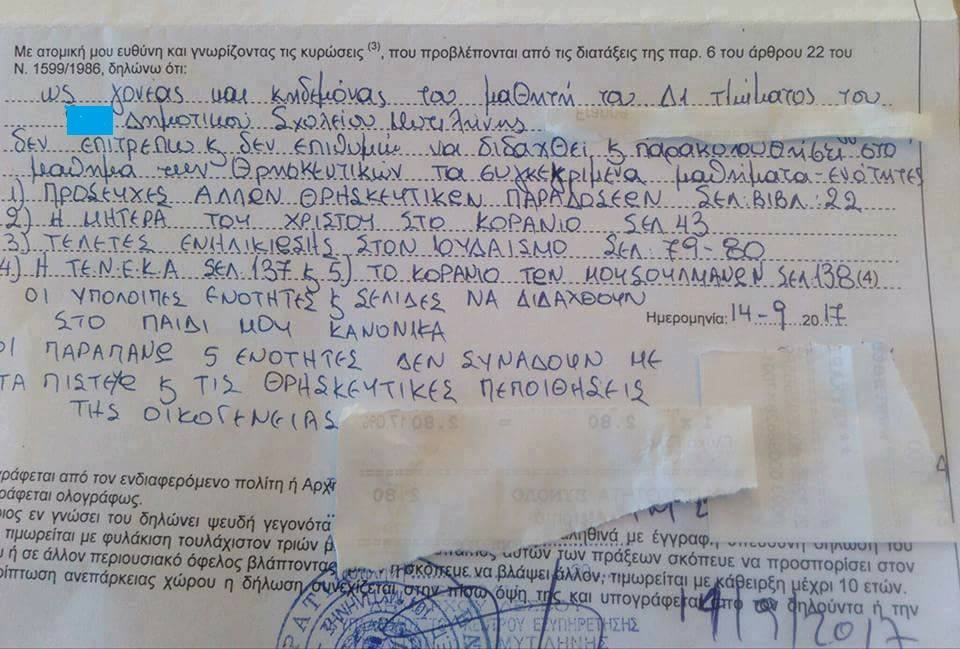 Με ατομική μου ευθύνη και γνωρίζοντας τις κυρώσεις (3), που προβλέπονται από τις διατάξεις της παρ. 6 του άρθρου 22 του
Ν. 1599/1986, δηλώνω ότι:
ως γονέας και κηδεμόνας του μαθητή του Δ1 τμήματος του
Δημοτικού Σχολείου Μυτιλήνης
δεν επιτρέπω & δεν επιθυμώ να διδαχθεί & παρακολουθήσει στο
μάθημα των Θρησκευτικών τα συγκεκριμένα μαθήματα-ενότητες
1) ΠΡΟΣΕΥΧΕΣ ΑΛΛΩΝ ΘΡΗΣΚΕΥΤΙΚΩΝ ΠΑΡΑΔΟΣΕΩΝ ΣΕΛ. ΒΙΒΛ.: 22
2) Η ΜΗΤΕΡΑ ΤΟΥ ΧΡΙΣΤΟΥ ΣΤΟ ΚΟΡΑΝΙΟ ΣΕΛ 43
3) ΤΕΛΕΤΕΣ ΕΝΗΛΙΚΙΩΣΗΣ ΣΤΟΝ ΙΟΥΔΑΙΣΜΟ ΣΕΛ. 79-80
4) Η Τ.Ε.Ν.Ε.Κ.Α ΣΕΛ. 137 & 5) ΤΟ ΚΟΡΑΝΙΟ ΤΩΝ ΜΟΥΣΟΥΛΜΑΝΩΝ ΣΕΛ 138 (4)
ΟΙ ΥΠΟΛΟΙΠΕΣ ΕΝΟΤΗΤΕΣ & ΣΕΛΙΔΕΣ ΝΑ ΔΙΔΑΧΘΟΥΝ
ΣΤΟ ΠΑΙΔΙ ΜΟΥ ΚΑΝΟΝΙΚΑ
Ημερομηνία: 14-9 2017
ΟΙ ΠΑΡΑΠΑΝΩ 5 ΕΝΟΤΗΤΕΣ ΔΕΝ ΣΥΝΑΔΟΥΝ ΜΕ
ΤΑ ΠΙΣΤΕΥΩ & ΤΙΣ ΘΡΗΣΚΕΥΤΙΚΕΣ ΠΕΠΟΙΘΗΣΕΙΣ
ΤΗΣ ΟΙΚΟΓΕΝΕΙΑΣ
ράφεται από τον ενδιαφερόμενο πολίτη ή Αρχ
ράφεται ολογράφως.
ιος εν γνώσει του δηλώνει ψευδή γεγονότα
ληθινά με έγγραφ
τιμωρείται με φυλάκιση τουλάχιστον τριών μ
αυτών των πράξεων σκόπευε να προσπορίσει στον
ή σε άλλον περιουσιακό όφελος βλάπτοντας
ή σκόπευε να βλάψει άλλον, τιμωρείται με κάθειρξη μέχρι 10 ετών.
ρίπτωση ανεπάρκειας χώρου η δήλωση συνεχίζεται στην πίσω όψη της και υπογράφεται από τον δηλούντα ή την
ΕΞΥΠΗΡΕΤΗΣΗΣ
ΜΥΤΙΛΗΝΗΣ
14/9/2017